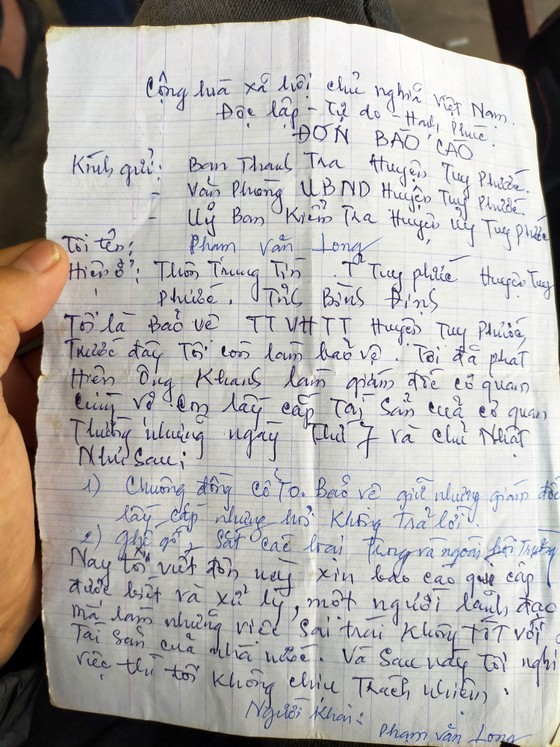 Cộng hòa xã hội chủ nghĩa Việt Nam
Độc lập - Tự do - Hạnh Phúc.
ĐƠN BÁO CÁO
Kính gửi: Ban Thanh Tra Huyện Tuy Phước.
Văn Phòng UBND Huyện Tuy Phước.
- Uỷ Ban Kiểm Tra Huyện Uỷ Tuy Phước
Tôi tên: Phạm Văn Long
Hiện ở: Thôn Trung Tín. TT Tuy phước Huyện Tuy
Phước. Tỉnh Bình Định
Tôi là Bảo vệ TTVHTT Huyện Tuy Phước,
Trước đây Tôi còn làm bảo vệ. Tôi đã phát
Hiện Ông Khanh làm giám đốc cơ quan
cùng vợ con lấy cắp Tài Sản của cơ quan
Thường những ngày Thứ 7 và chủ Nhật
Như sau;
1) Chuông đồng cổ To. Bảo vệ giữ nhưng giám đốc
lấy cấp nhưng hỏi không trả lời.
2) ghế sắt các loại Trong và ngoài hội Trường
Nay tôi viết đơn này xin báo cáo quý cấp
được biết và xử lý, một người lãnh đạo
mà làm những việc sai trái không tốt với
Tài sản của nhà nước. Và sau này tôi nghỉ
việc thì tôi không chịu Trách nhiệm.
Người khai:
Phạm Văn Long